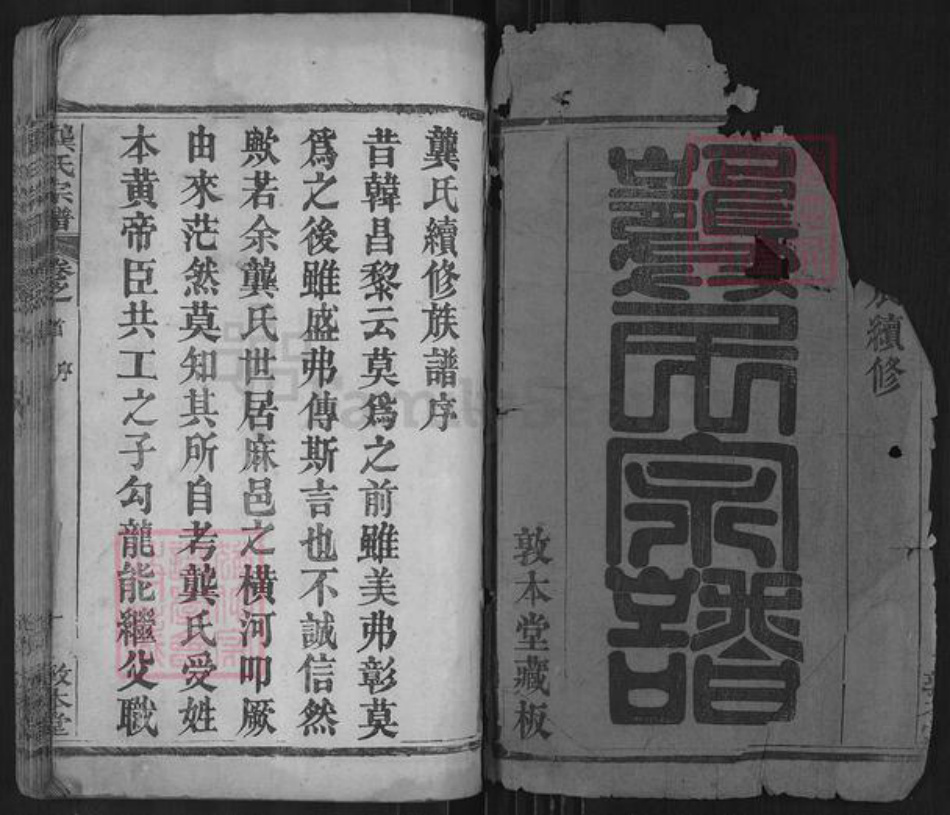 續修
龔氏宗譜
敦本堂藏板
龔氏續修族譜序
昔韓昌黎云莫爲之前雖美弗彰莫
爲之後雖盛弗傳斯言也不誠信然
歟若余龔氏世居麻邑之橫河叩厥
由來茫然莫知其所自考龔氏受姓
本黃帝臣共工之子勾龍能繼父職
龔氏宗譜 卷之首 序 一 敦本堂